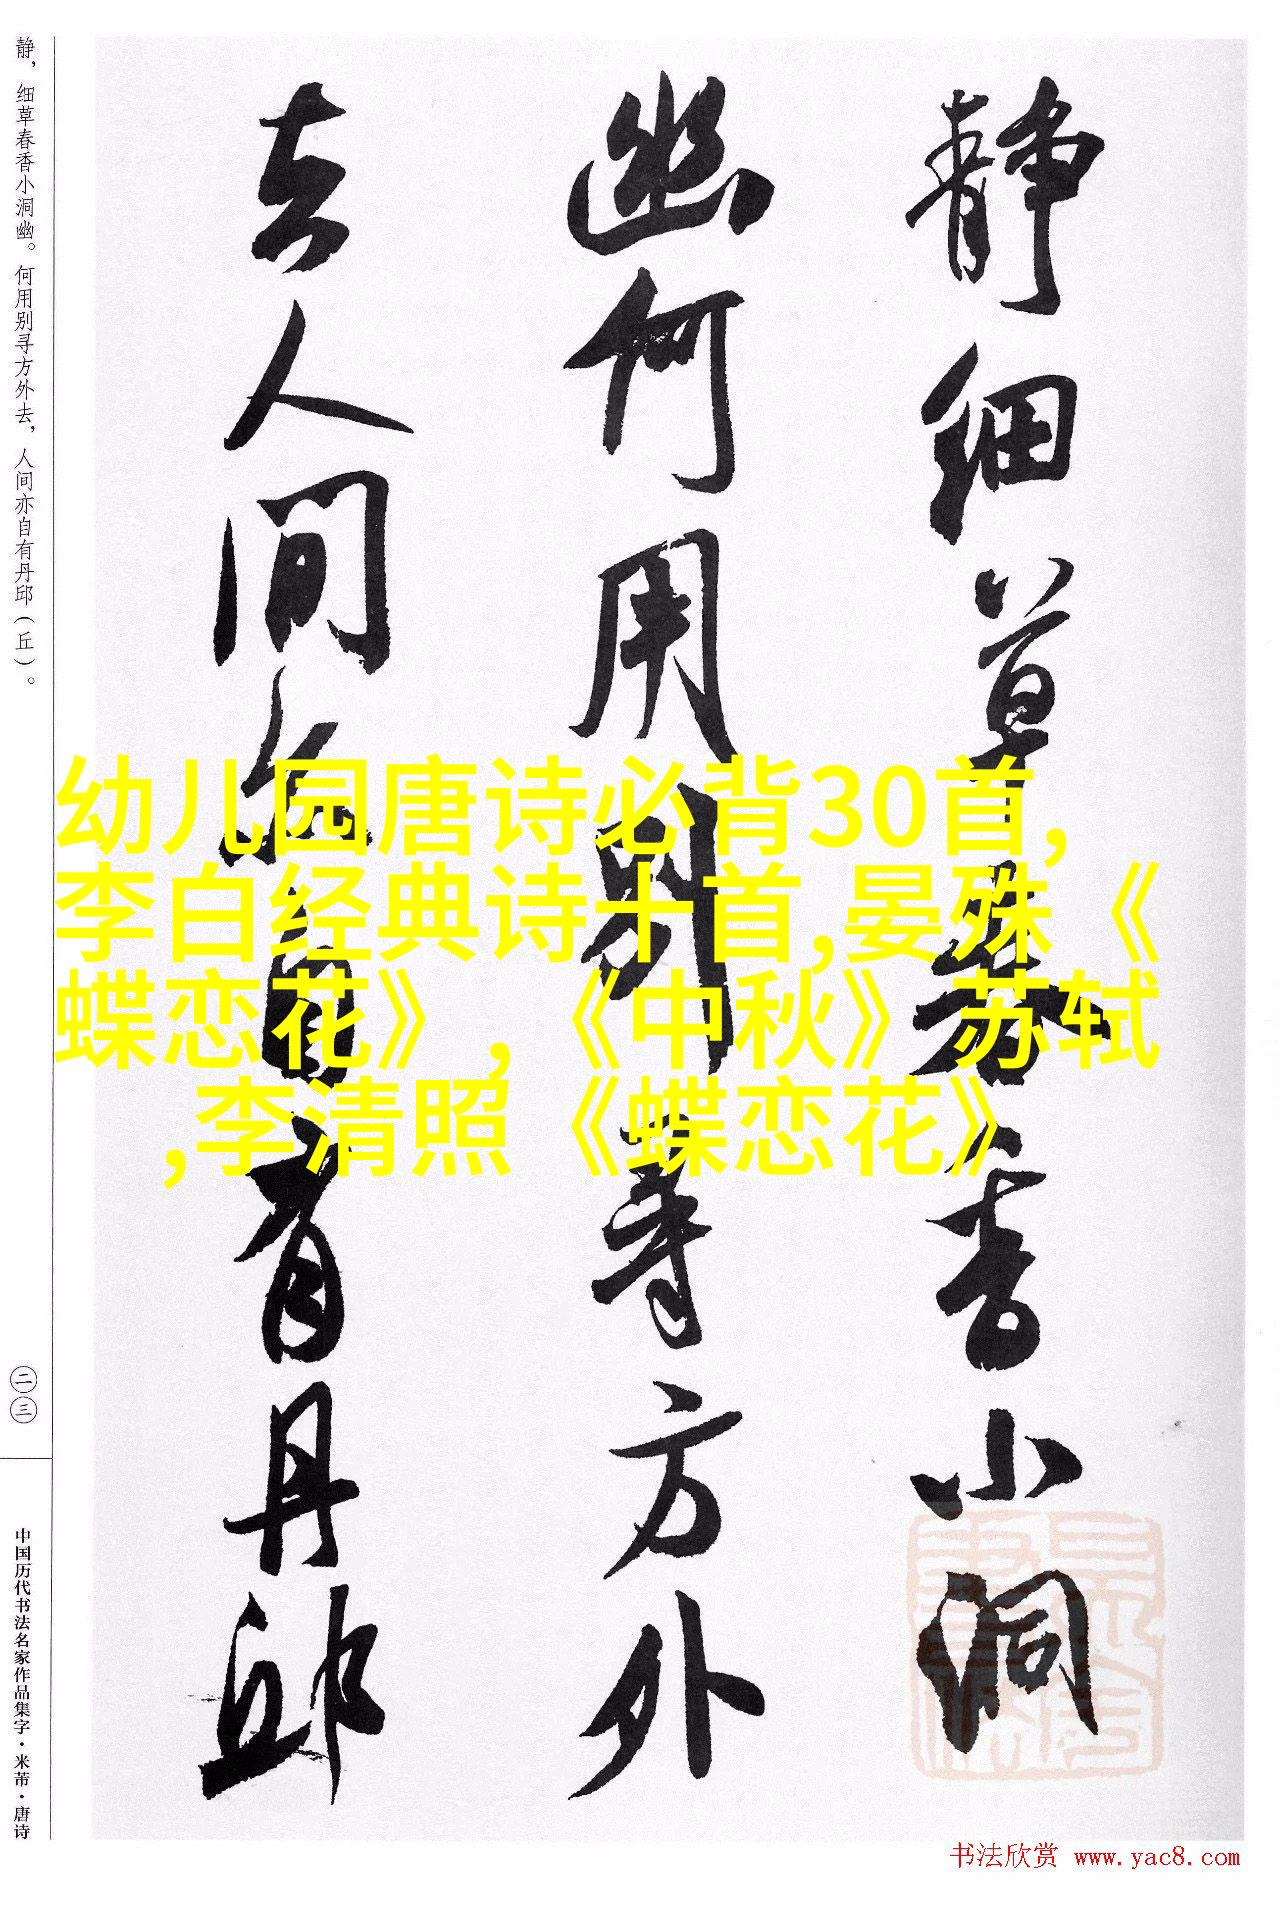 静细草春香小洞
幽何用别寻方外
去人间亦自有丹邱
静，细草春香小洞幽。何用别寻方外去，人间亦自有丹邱（丘）。
二三
中国历代书法名家作品集字·米芾·唐诗
幼儿园唐诗必背30首,
李白经典诗十首,晏殊《
蝶恋花》,《中秋》苏轼
,李清照《蝶恋花》
书法欣赏 www.yac8.com